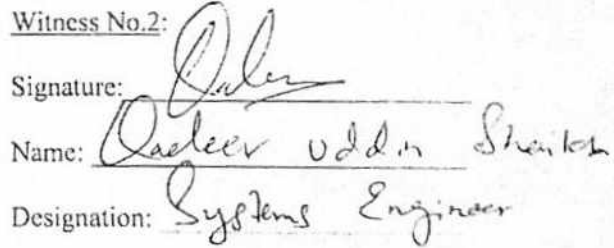 Witness No.2:
Signature: Qadeer
Name: Qadeer Uddin Sheikh
Designation: Systems Engineer